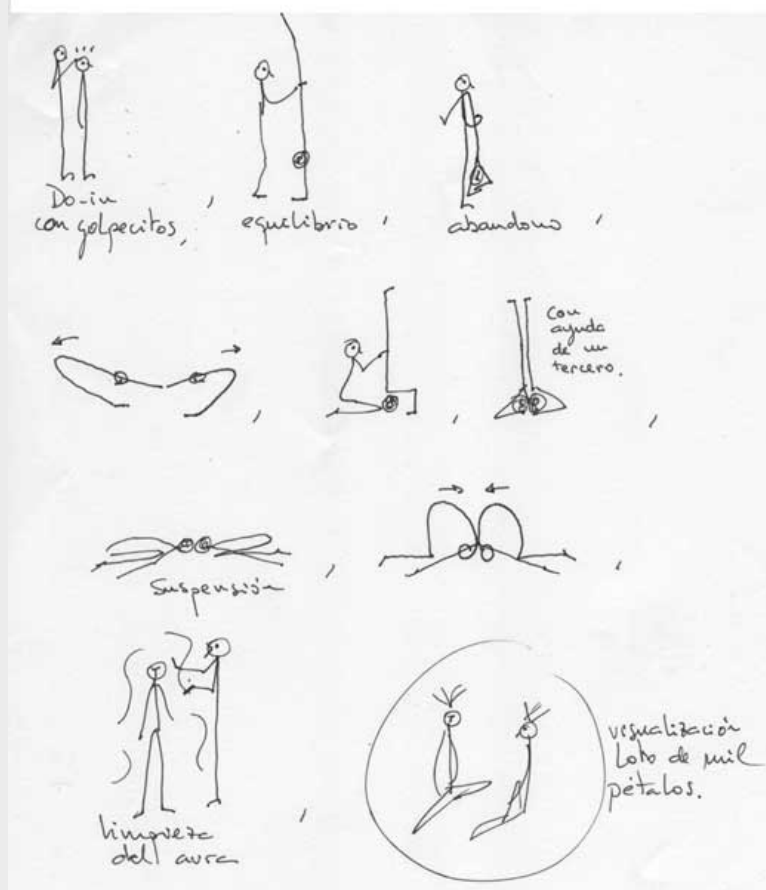 Do-in
con golpecitos,
,
equilibrio,
abandono,
,
Con
ayuda
de un
tercero.
,
,
Suspensión,
,
limpieza
del aura,
visualización
Loto de mil
pétalos.